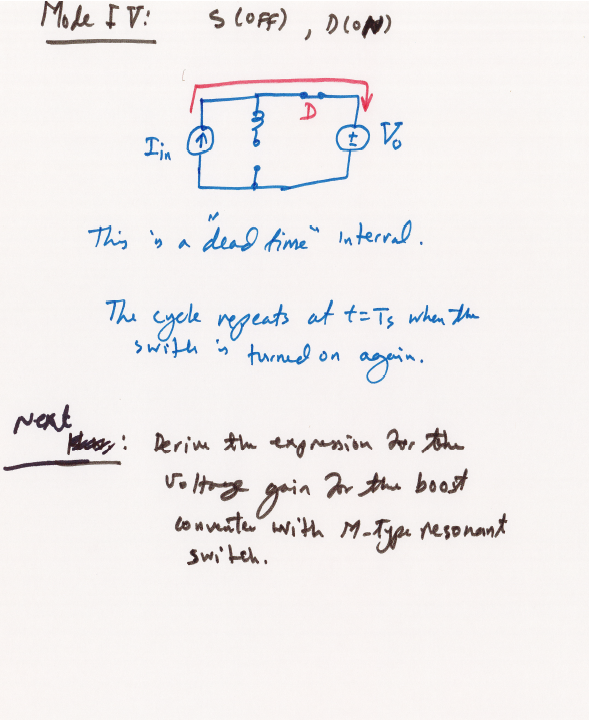 Mode IV: S (OFF), D (ON)
D
Iin
± Vo
This is a "dead time" interval.
The cycle repeats at t=Ts when the
switch is turned on again.
Next
: Derive the expression for the
voltage gain for the boost
converter with M-Type resonant
switch.